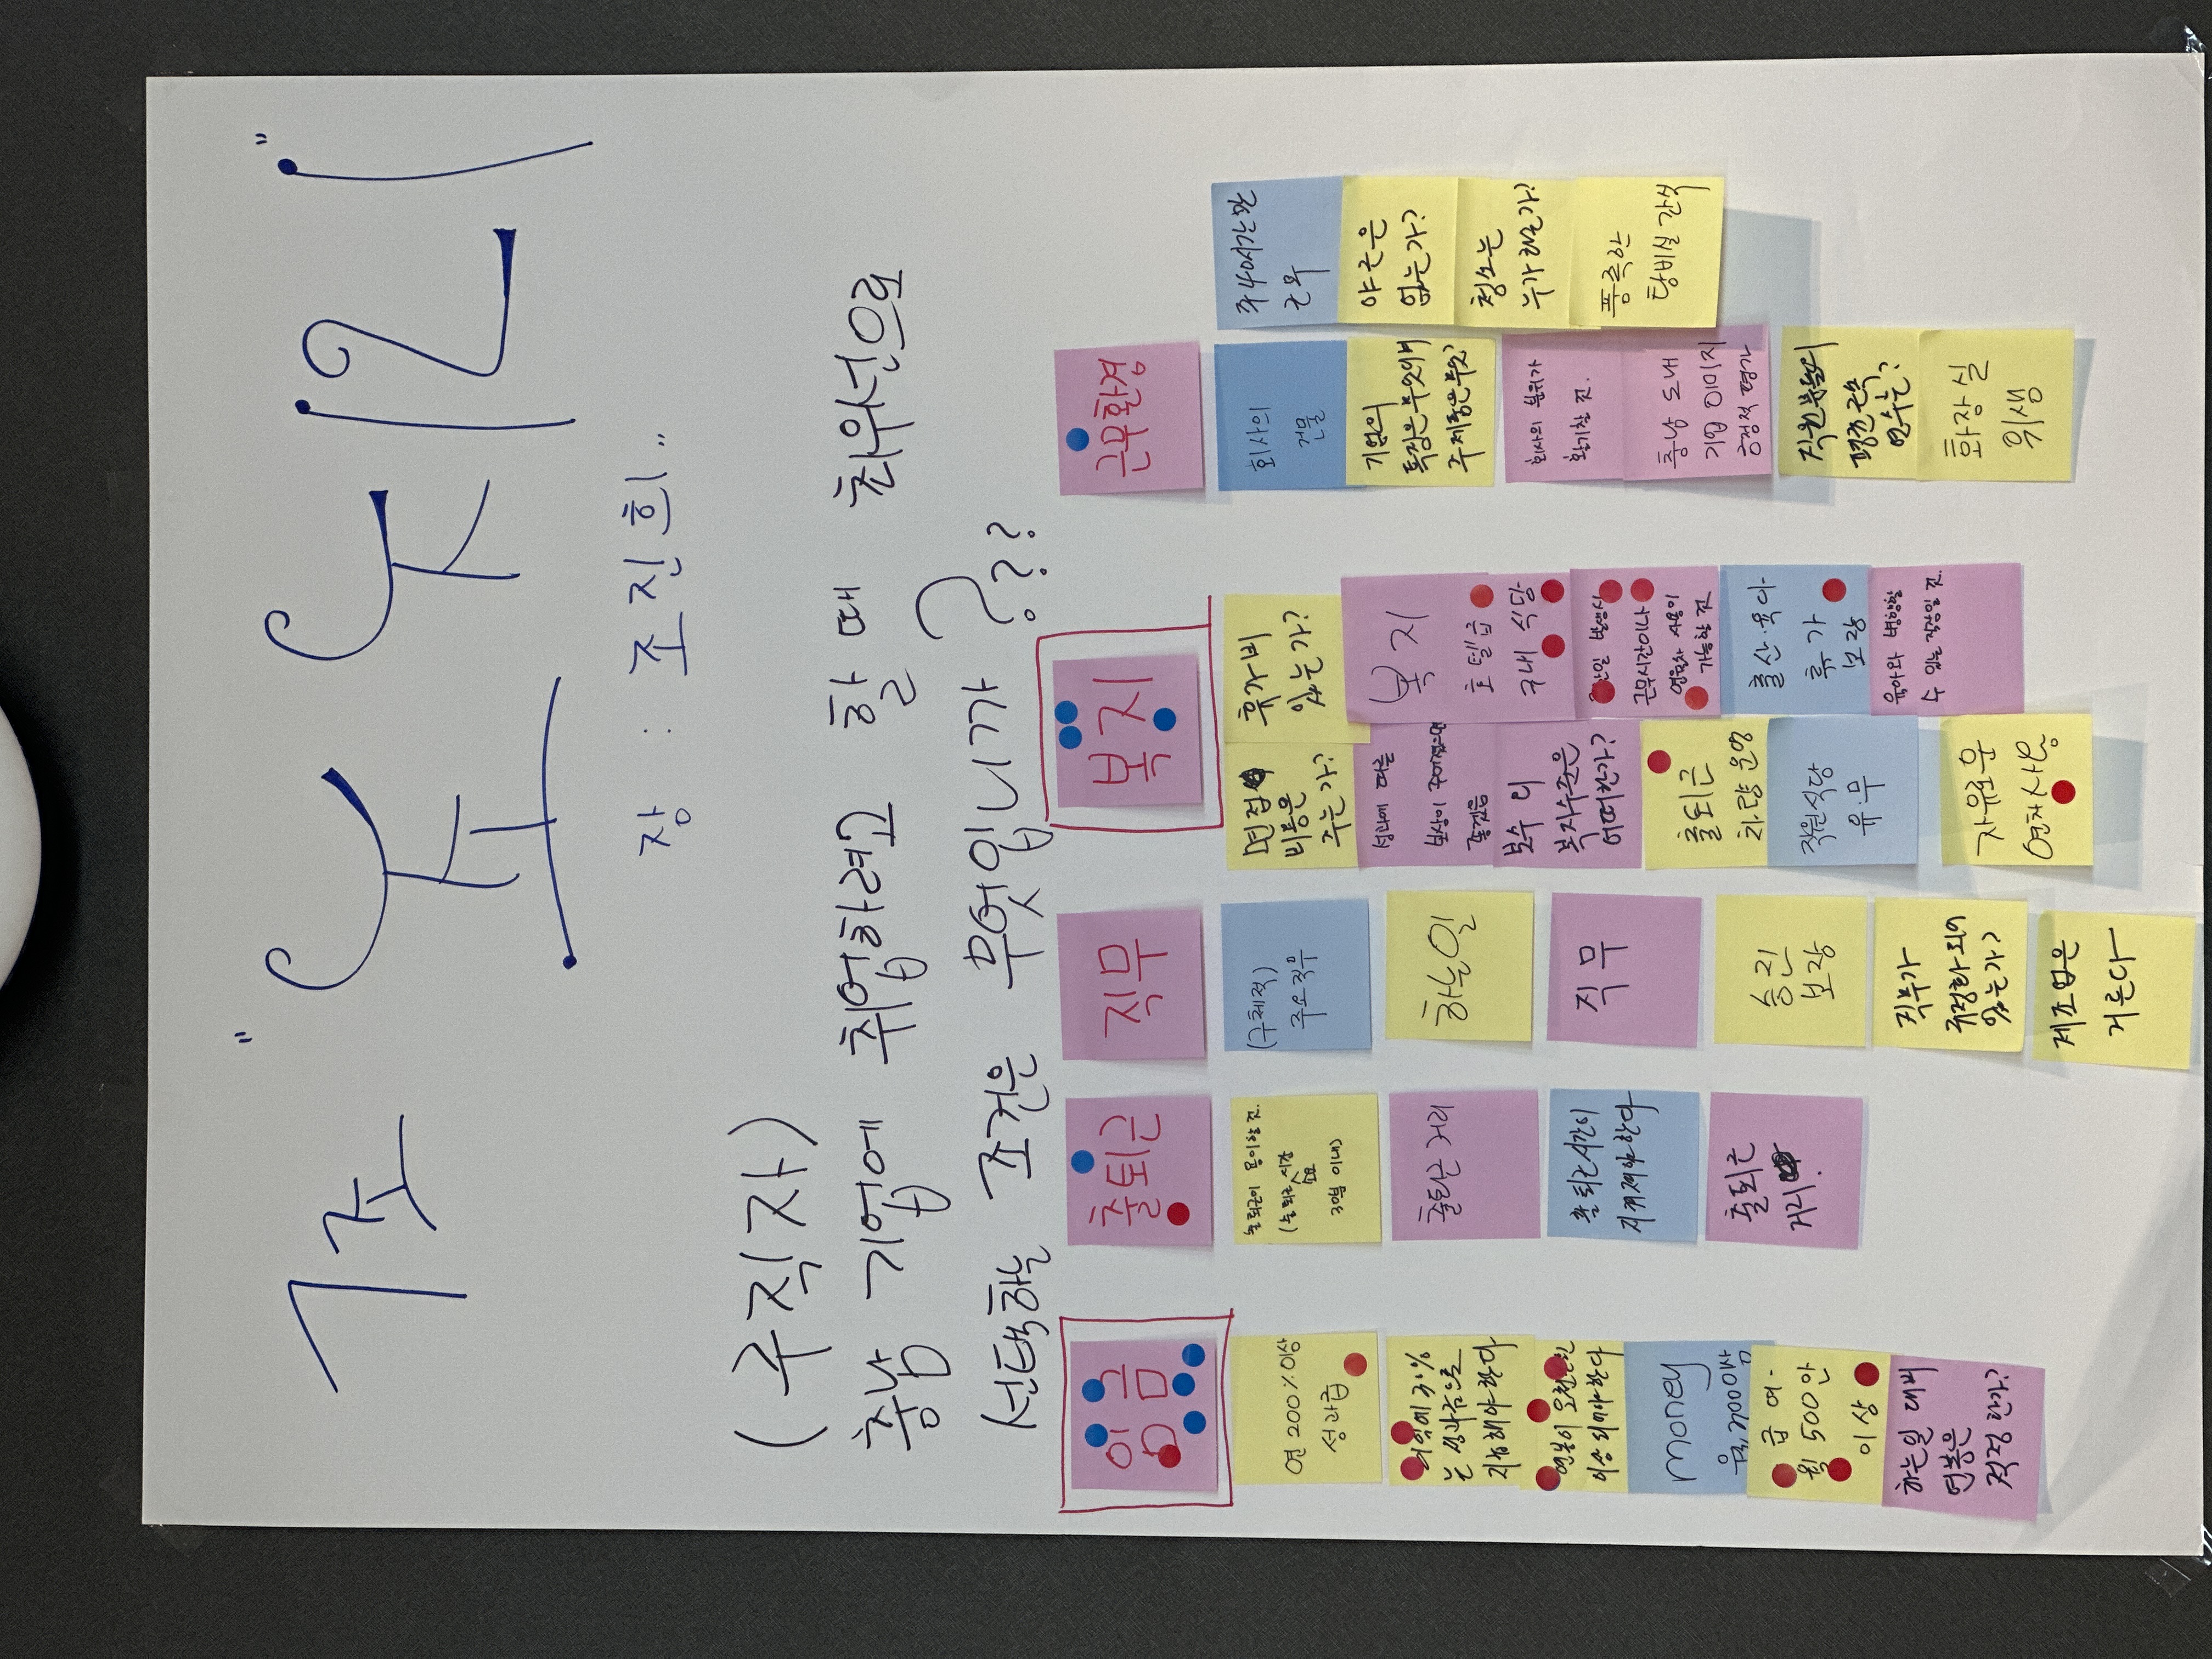 1조
" 조지인 "
장 : 조진희..
(구직자)
충남 기업에 취업하려고 할 때 최우선으로
선택하는 조건은 무엇입니까???
임금
연 200%이상
성과급
이익에 30%
는 성과금으로
지급해야 한다
연봉이 오천만원
이상 되어야 한다
money
급여 -
월 500만
이상
하는일 대비
연봉은
적정한가?
출퇴근
출퇴근이 용이할 것.
(출퇴근시간
30분 이내)
출퇴근 거리
출퇴근시간이
자유로워야 한다
출퇴근
거리.
직무
(구체적)
주요직무
하는일
직무
승진
보장
직무가
규정화 되어
있는가?
제조업은
거른다
복지
면접
비용은
주는가?
성과에 따른
보상이 주어졌으면
좋겠음
보수 외
복지수준은
어떠한가?
출퇴근
차량 운영
직원식당
유.무
자유로운
연차사용
휴가비
있는가?
복지
호텔급
구내 식당
근무시간이나
연월차 사용이
가능할 것
출산.육아
휴가
보장
육아와 병행할
수 있는 직장일 것.
근무환경
회사의
건물
기업의
특징은 무엇이며
주 제품은 무엇?
회사의 분위기가
활기찰 것.
충남 도내
기업 이미지
긍정적 평가
직원분들의
평균 근속
연수는?
화장실
위생
주 40시간만
근무
야근은
없는가?
청소는
누가 하는가?
풍족한
탕비실 간식